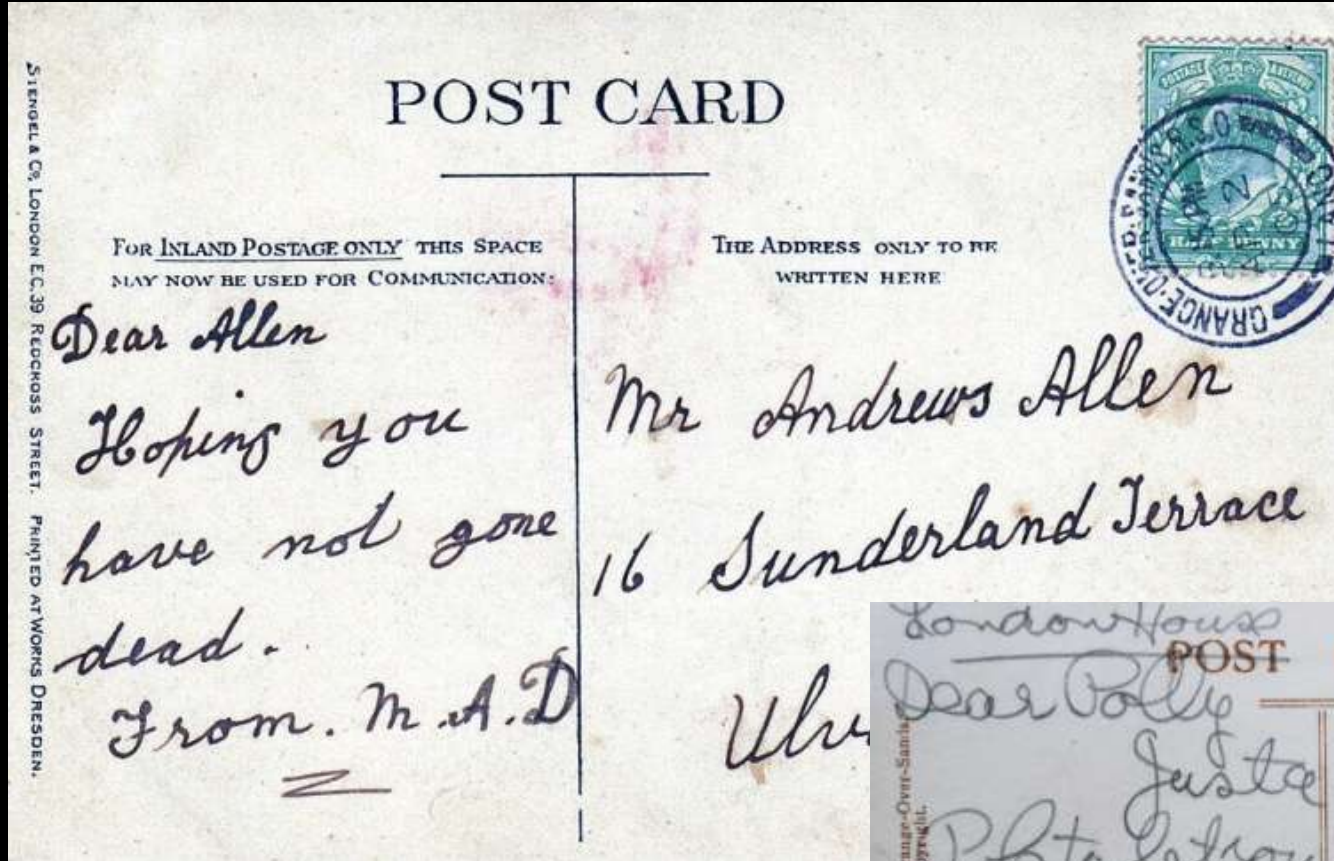 POST CARD
STENGEL & Co, LONDON E.C. 39 REDCROSS STREET. PRINTED AT WORKS DRESDEN.
FOR INLAND POSTAGE ONLY THIS SPACE
MAY NOW BE USED FOR COMMUNICATION.
THE ADDRESS ONLY TO BE
WRITTEN HERE
POSTAGE
HALF PENNY
GRANGE
Dear Allen
Hoping you
have not gone
dead.
From. M.A.D
Mr Andrews Allen
16 Sunderland Terrace
London House
POST
Dear Polly
Just a